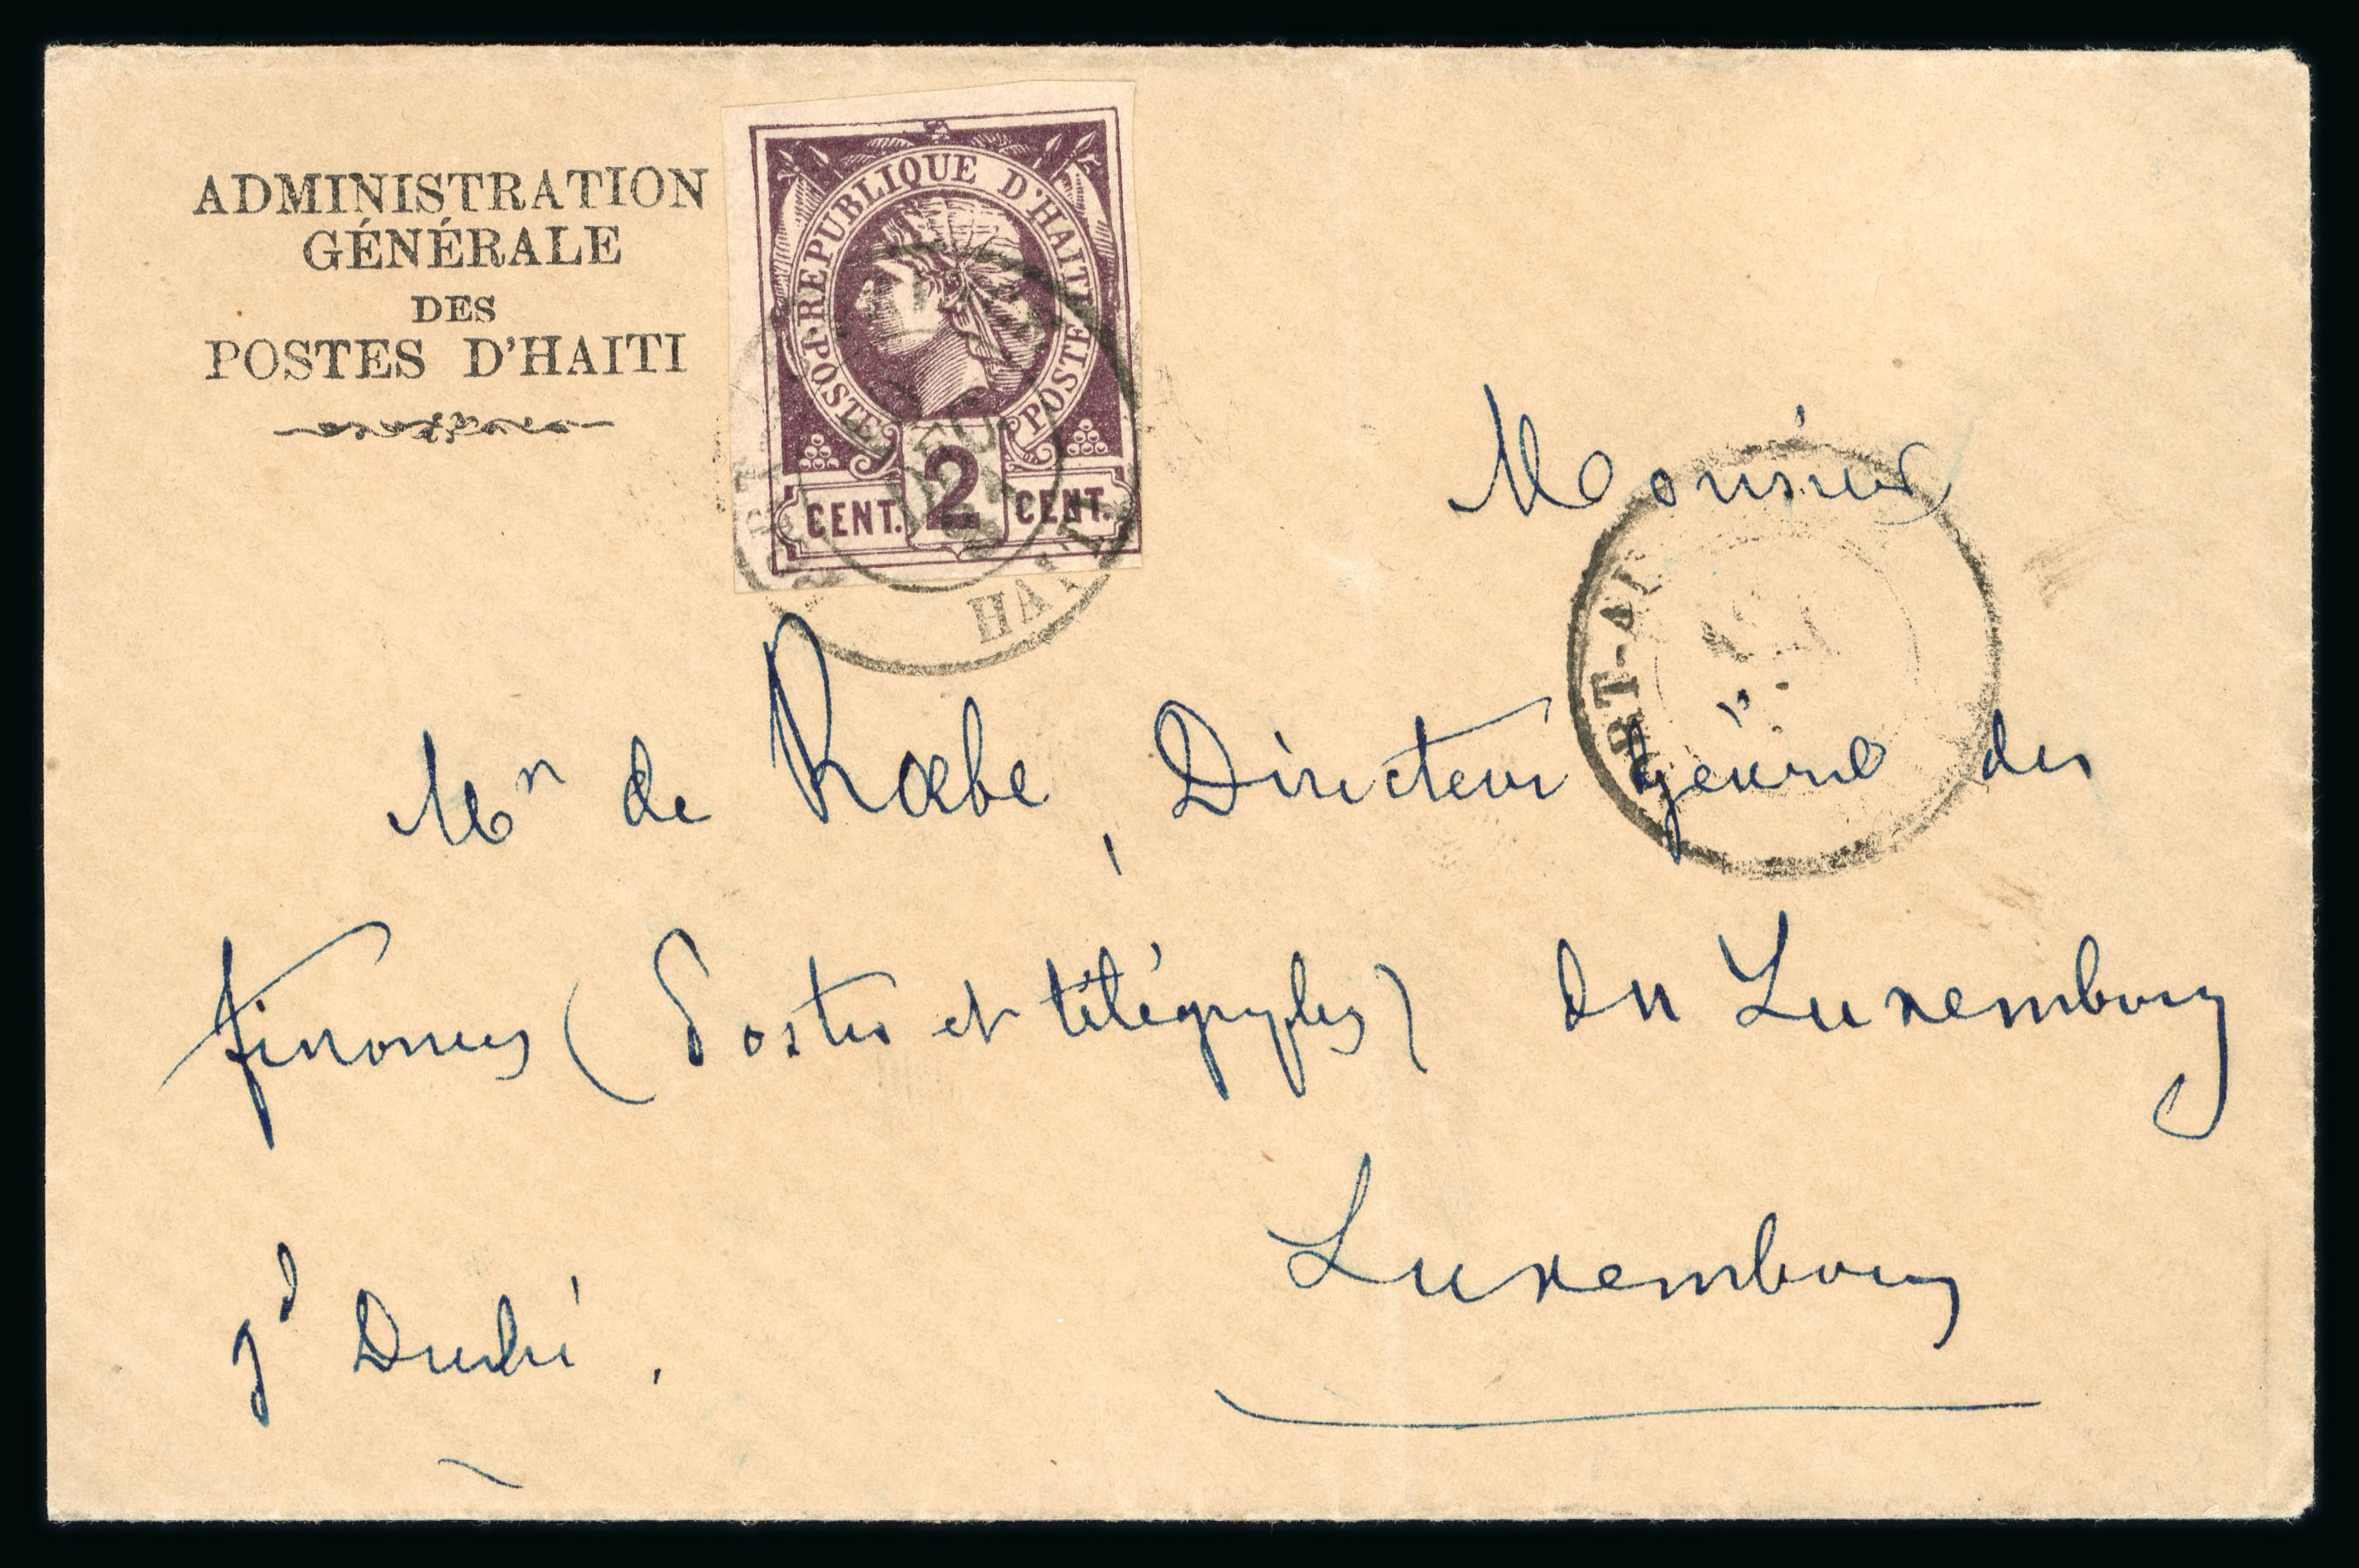 ADMINISTRATION
GÉNÉRALE
DES
POSTES D'HAITI
REPUBLIQUE D'HAITI
POSTE POSTE
CENT. 2 CENT.
HAITI
RT-AU
Monsieur
Mr de Rœbe, Directeur Général des
finances (Postes et télégraphes) du Luxembourg
Luxembourg
gd Duché.